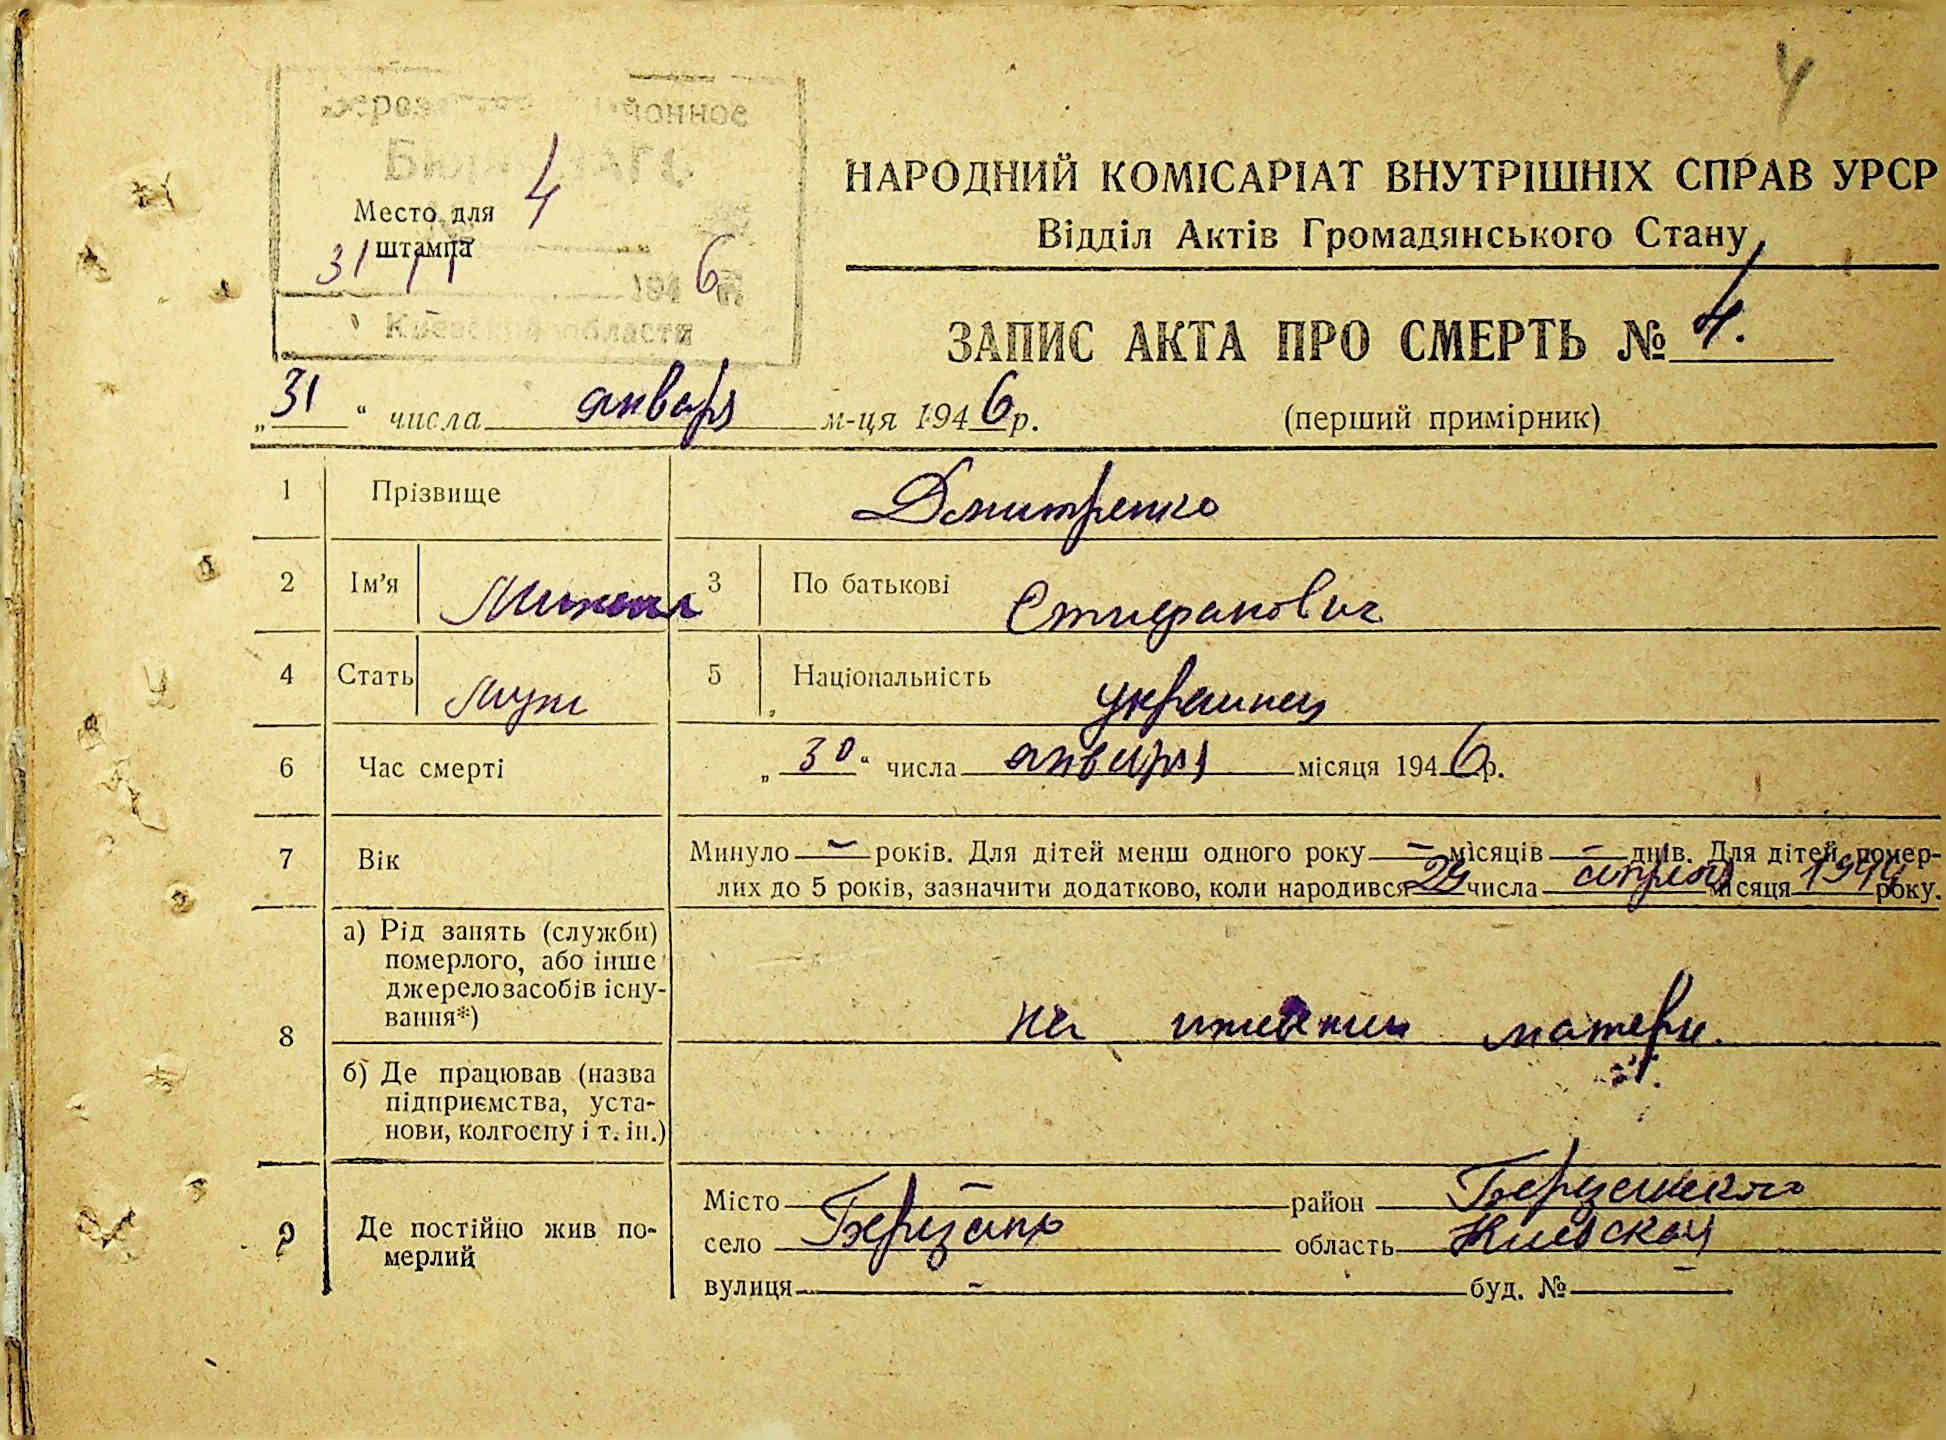 4
районное
Бюро ЗАГС
Место для
штампа
4
31 / I
194 6
Киевской области
НАРОДНИЙ КОМІСАРІАТ ВНУТРІШНІХ СПРАВ УРСР
Відділ Актів Громадянського Стану
ЗАПИС АКТА ПРО СМЕРТЬ № 4.
„ 31 “ числа январь м-ця 1946 р. (перший примірник)
1 Прізвище Дмитренко
2 Ім’я Михаил 3 По батькові Стифанович
4 Стать муж 5 Національність украинец
6 Час смерті „ 30 “ числа января місяця 1946 р.
7 Вік Минуло – років. Для дітей менш одного року – місяців – днів. Для дітей помер-
лих до 5 років, зазначити додатково, коли народився 29 числа апреля місяця 1944 року.
а) Рід занять (служби)
померлого, або інше
джерело засобів існу-
вання*)
8 на иждивении матери.
б) Де працював (назва
підприємства, уста-
нови, колгоспу і т. ін.)
9 Де постійно жив по-
мерлий
Місто – район Березанского
село Березань область Киевской
вулиця – буд. № –